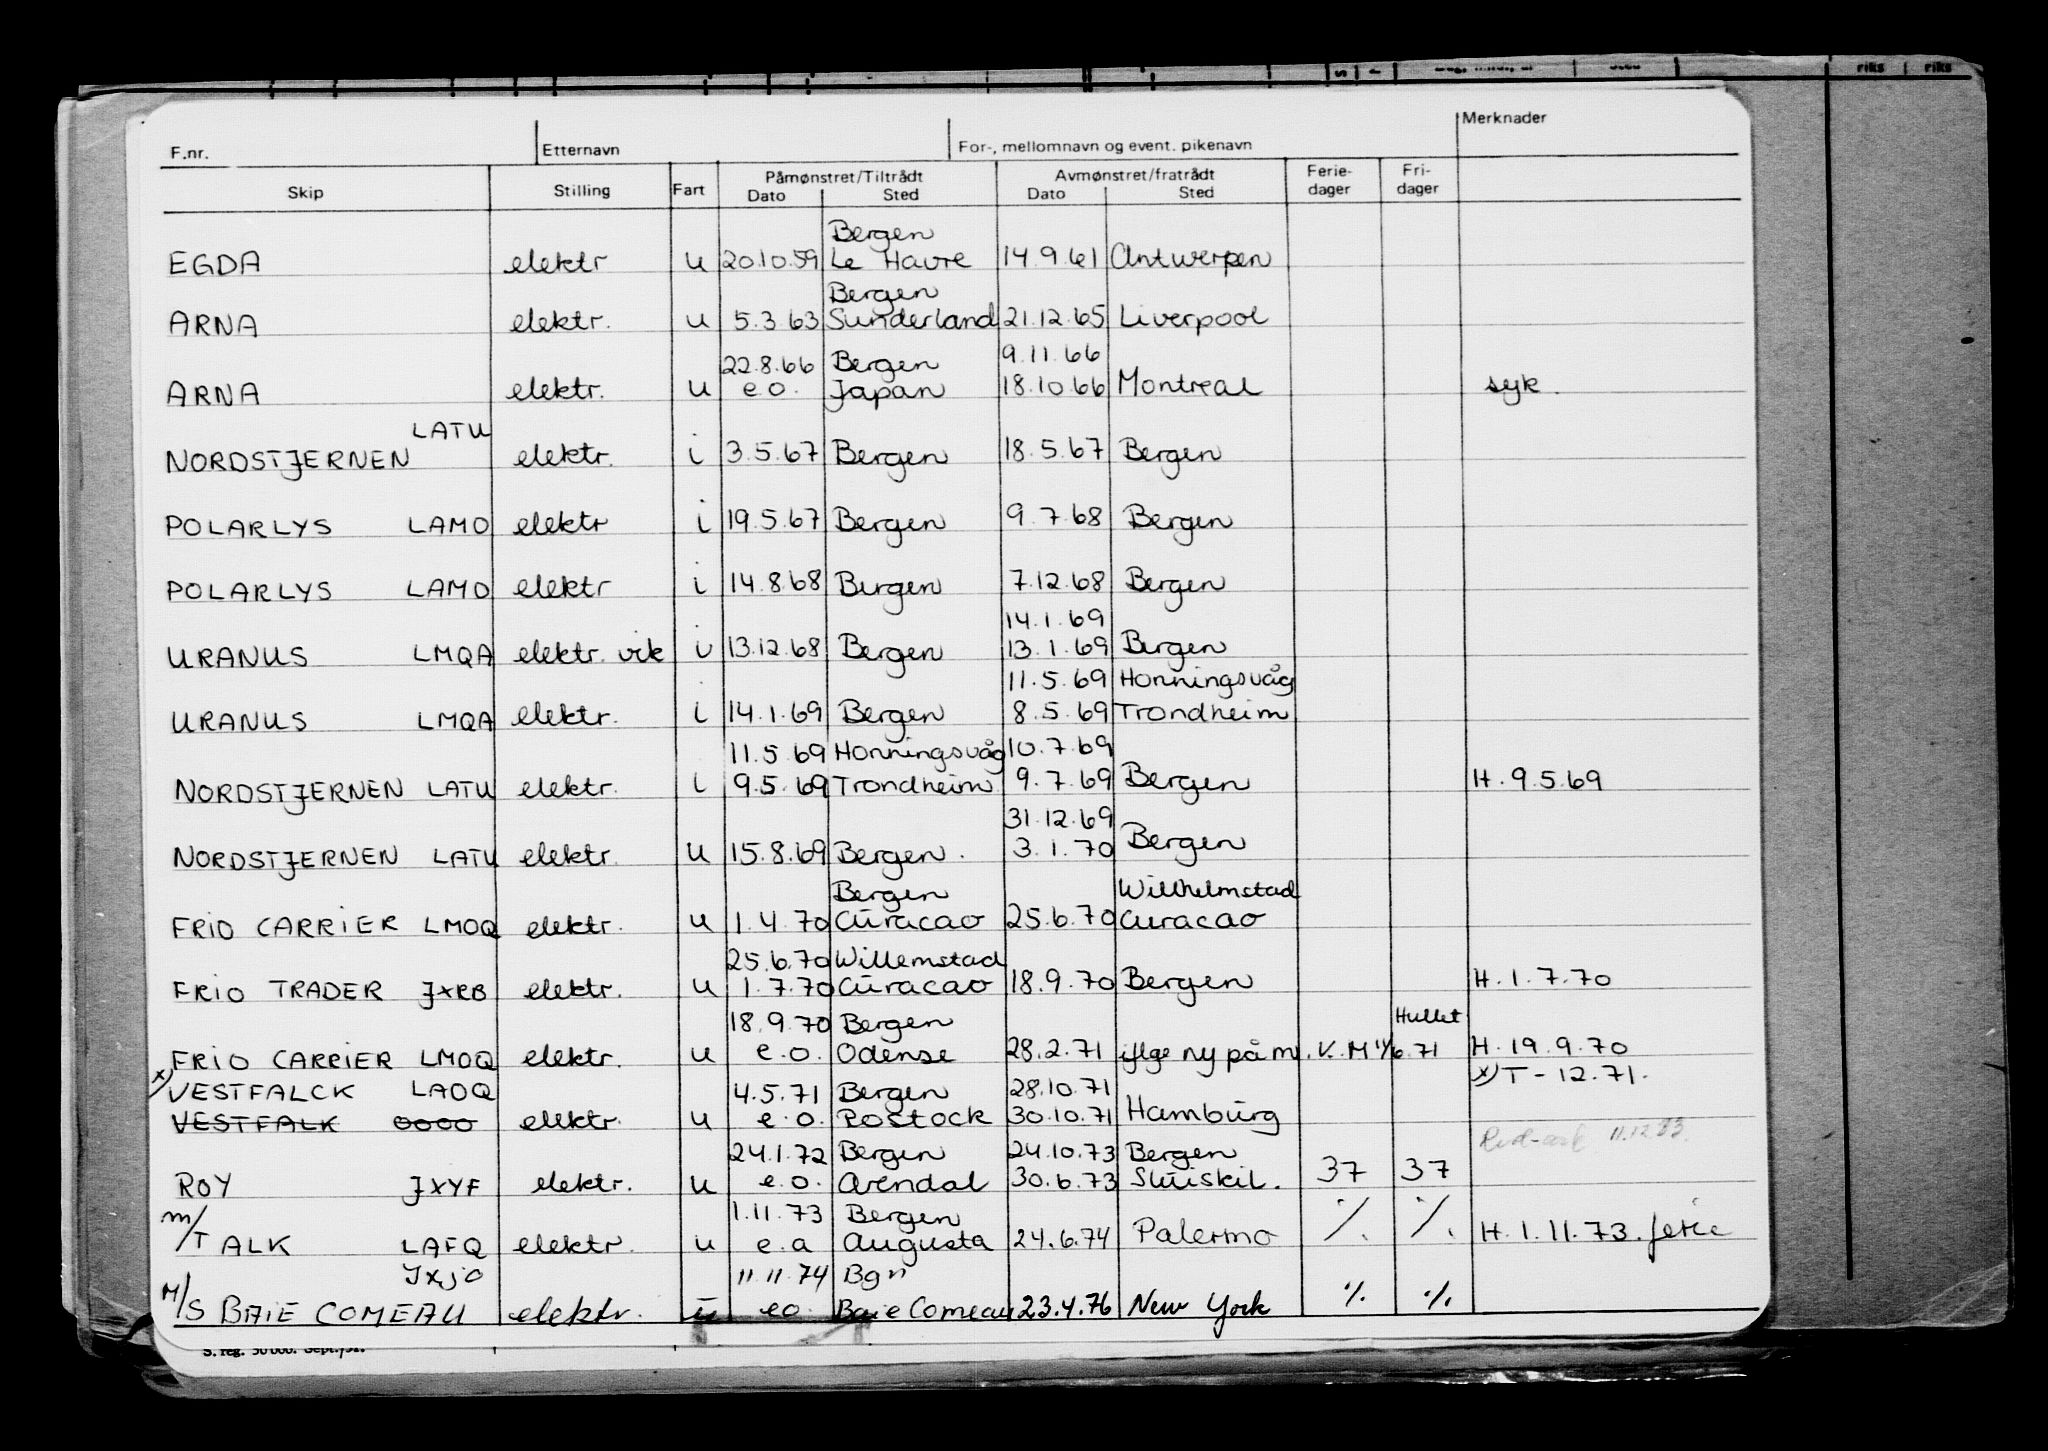 riks riks
F.nr. Etternavn For-, mellomnavn og event. pikenavn Merknader
Skip Stilling Fart Påmønstret/Tiltrådt Avmønstret/fratrådt Ferie- Fri-
Dato Sted Dato Sted dager dager
Bergen
EGDA elektr u 20.10.59 Le Havre 14.9.61 Antwerpen
Bergen
ARNA elektr. u 5.3.63 Sunderland 21.12.65 Liverpool
22.8.66 Bergen 9.11.66
ARNA elektr. u e.o. Japan 18.10.66 Montreal syk.
LATU
NORDSTJERNEN elektr. i 3.5.67 Bergen 18.5.67 Bergen
POLARLYS LAMO elektr i 19.5.67 Bergen 9.7.68 Bergen
POLARLYS LAMO elektr i 14.8.68 Bergen 7.12.68 Bergen
14.1.69
URANUS LMQA elektr. vik i 13.12.68 Bergen 13.1.69 Bergen
11.5.69 Honningsvåg
URANUS LMQA elektr. i 14.1.69 Bergen 8.5.69 Trondheim
11.5.69 Honningsvåg 10.7.69
NORDSTJERNEN LATU elektr. i 9.5.69 Trondheim 9.7.69 Bergen H. 9.5.69
31.12.69
NORDSTJERNEN LATU elektr. u 15.8.69 Bergen. 3.1.70 Bergen
Bergen Willhelmstad
FRIO CARRIER LMOQ elektr. u 1.4.70 Curacao 25.6.70 Curacao
25.6.70 Willemstad
FRIO TRADER JXRB elektr. u 1.7.70 Curacao 18.9.70 Bergen H. 1.7.70
18.9.70 Bergen Hullet
FRIO CARRIER LMOQ elektr. u e.o. Odense 28.2.71 iflge ny påm. V.M 1/6.71 H. 19.9.70
x) VESTFALCK LAOQ 4.5.71 Bergen 28.10.71 x) T-12.71.
VESTFALK OOOO elektr. u e.o. Rostock 30.10.71 Hamburg
24.1.72 Bergen 24.10.73 Bergen 11.12.73
ROY JXYF elektr. u e.o. Arendal 30.6.73 Sluiskil. 37 37
1.11.73 Bergen
m/T ALK LAFQ elektr. u e.a Augusta 24.6.74 Palermo %. %. H. 1.11.73. ferie
JXJO 11.11.74 Bgn
M/S BAIE COMEAU elektr. u eo. Baie Comeau 23.4.76 New York %. %.
S. reg. 50 000. Sept.